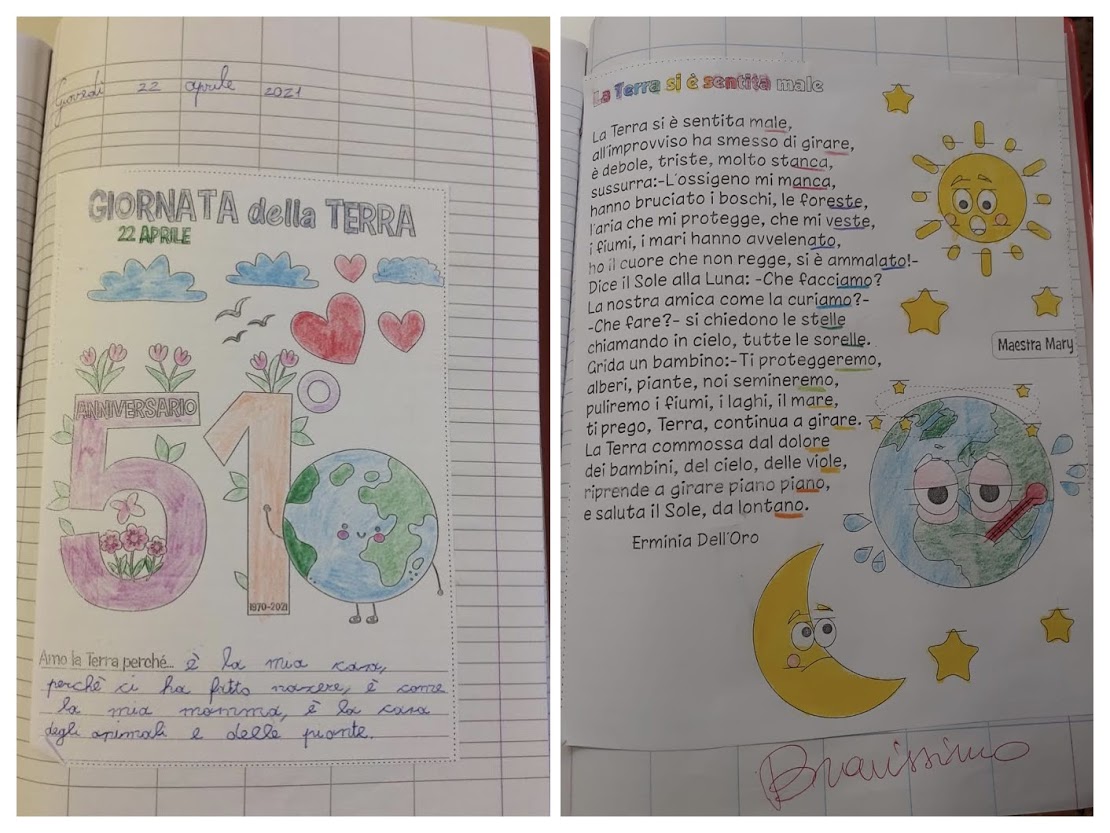 Giovedì 22 aprile 2021
GIORNATA della TERRA
22 APRILE
ANNIVERSARIO
51°
1970-2021
Amo la Terra perché... è la mia casa,
perchè ci ha fatto nascere, è come
la mia mamma, è la casa
degli animali e delle piante.
La Terra si è sentita male
La Terra si è sentita male,
all'improvviso ha smesso di girare,
è debole, triste, molto stanca,
sussurra:-L'ossigeno mi manca,
hanno bruciato i boschi, le foreste,
l'aria che mi protegge, che mi veste,
i fiumi, i mari hanno avvelenato,
ho il cuore che non regge, si è ammalato!-
Dice il Sole alla Luna: -Che facciamo?
La nostra amica come la curiamo?-
-Che fare?- si chiedono le stelle
chiamando in cielo, tutte le sorelle.
Grida un bambino:-Ti proteggeremo,
alberi, piante, noi semineremo,
puliremo i fiumi, i laghi, il mare,
ti prego, Terra, continua a girare.
La Terra commossa dal dolore
dei bambini, del cielo, delle viole,
riprende a girare piano piano,
e saluta il Sole, da lontano.
Erminia Dell'Oro
Maestra Mary
Bravissimo